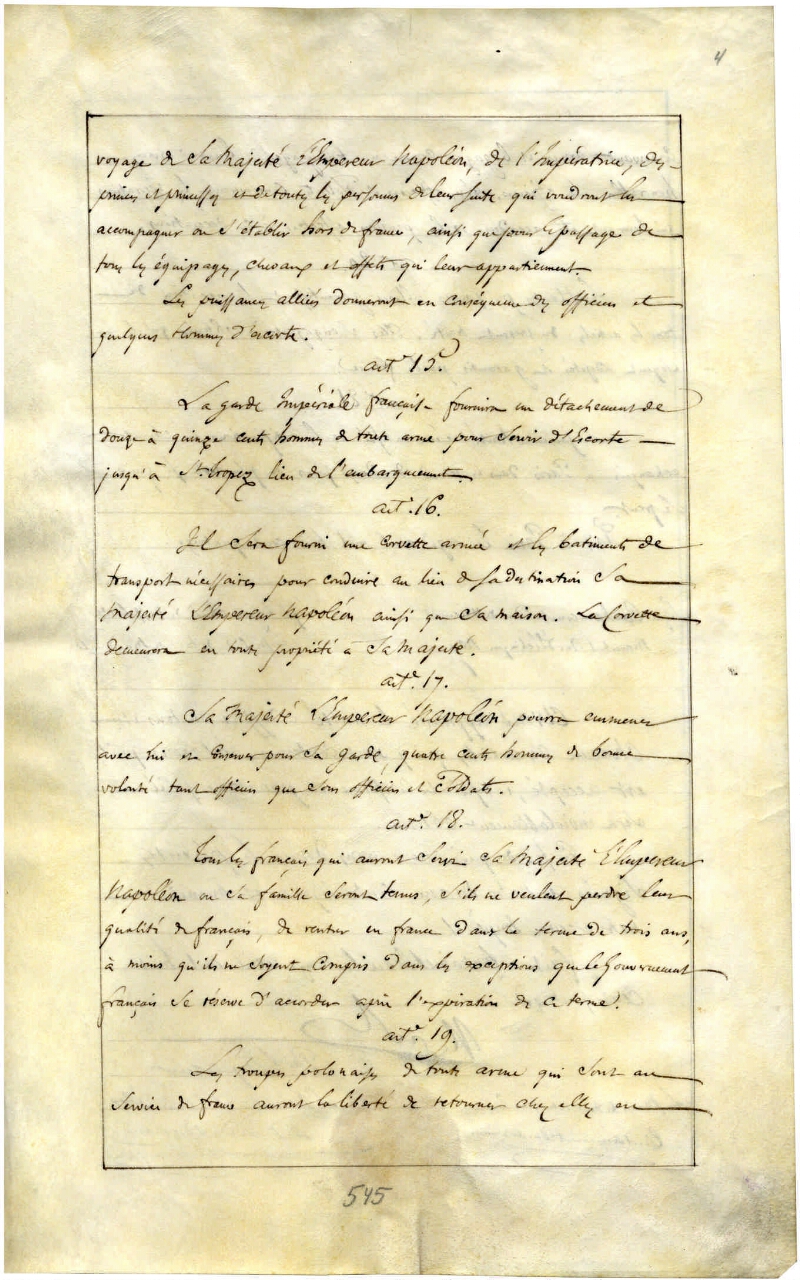 4
voyage de Sa Majesté l'Empereur Napoléon, de l'Impératrice, des
princes et princesses et de toutes les personnes de leur suite qui voudront les
accompagner ou s'établir hors de france, ainsi que pour le passage de
tous les équipages, chevaux et effets qui leur appartiennent.
Les puissances alliées donneront en conséquence des officiers et
quelques hommes d'escorte.
art.e 15.
La garde Impériale française fournira un détachement de
douze à quinze cents hommes de toute arme pour servir d'Escorte
jusqu'à St. Tropez lieu de l'embarquement.
art.e 16.
Il sera fourni une corvette armée et les batiments de
transport nécessaires pour conduire au lieu de sa destination Sa
Majesté l'Empereur Napoléon ainsi que sa maison. La Corvette
demeurera en toute propriété à Sa Majesté.
art.e 17.
Sa Majesté l'Empereur Napoléon pourra emmener
avec lui et conserver pour sa garde, quatre cents hommes de bonne
volonté tant officiers que sous officiers et Soldats.
art.e 18.
Tous les français qui auront servi Sa Majesté l'Empereur
Napoléon ou sa famille seront tenus, s'ils ne veulent perdre leur
qualité de français, de rentrer en france dans le terme de trois ans,
à moins qu'ils ne soyent compris dans les exceptions que le Gouvernement
français se réserve d'accorder après l'expiration de ce terme.
art.e 19.
Les troupes polonaises de toute arme qui sont au
Service de france auront la liberté de retourner chez elles en
545